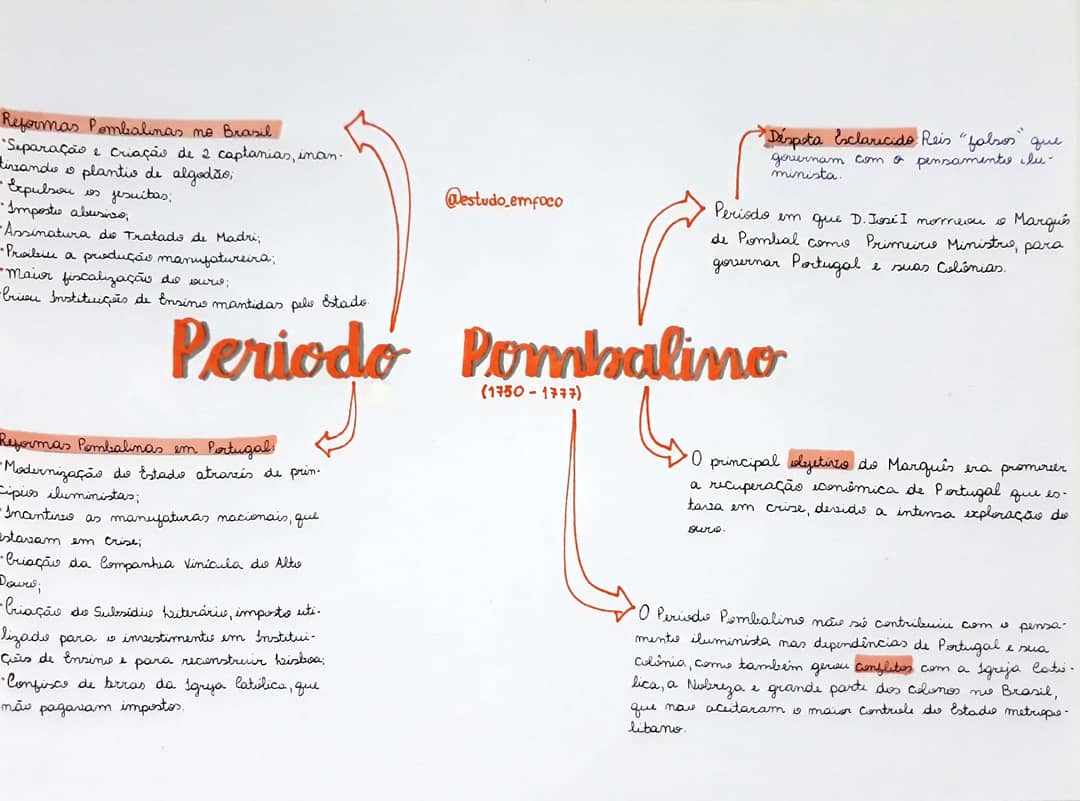 Reformas Pombalinas no Brasil
•Separação e criação de 2 captanias, inan-
tivando o plantio de algodão;
•Expulsou os jesuítas;
•Imposto abusivo;
•Assinatura do Tratado de Madri;
•Proibiu a produção manufatureira;
•Maior fiscalização do ouro;
•Criou Instituições de Ensino mantidas pelo Estado.
@estudo_emfoco
Déspota Esclarecido: Reis "falsos" que
governam com o pensamento ilu-
minista.
Periodo em que D. José I nomeou o Marquês
de Pombal como Primeiro Ministro, para
governar Portugal e suas Colônias.
Periodo Pombalino
(1750 - 1777)
Reformas Pombalinas em Portugal:
•Modernização do Estado através de prin-
cípios iluministas;
•Incentivo as manufaturas nacionais, que
estavam em crise;
•Criação da Companhia Vinícula do Alto
Douro;
•Criação do Subsídio Literário, imposto uti-
lizado para o investimento em Institui-
ções de Ensino e para reconstruir Lisboa;
•Confisco de terras da Igreja Católica, que
não pagavam impostos.
O principal objetivo do Marquês era promover
a recuperação econômica de Portugal que es-
tava em crise, devido a intensa exploração do
ouro.
O Periodo Pombalino não só contribuiu com o pensa-
mento iluminista nas dependências de Portugal e sua
Colônia, como também gerou conflitos com a Igreja Cató-
lica, a Nobreza e grande parte dos colonos no Brasil,
que não aceitaram o maior controle do Estado metropo-
litano.